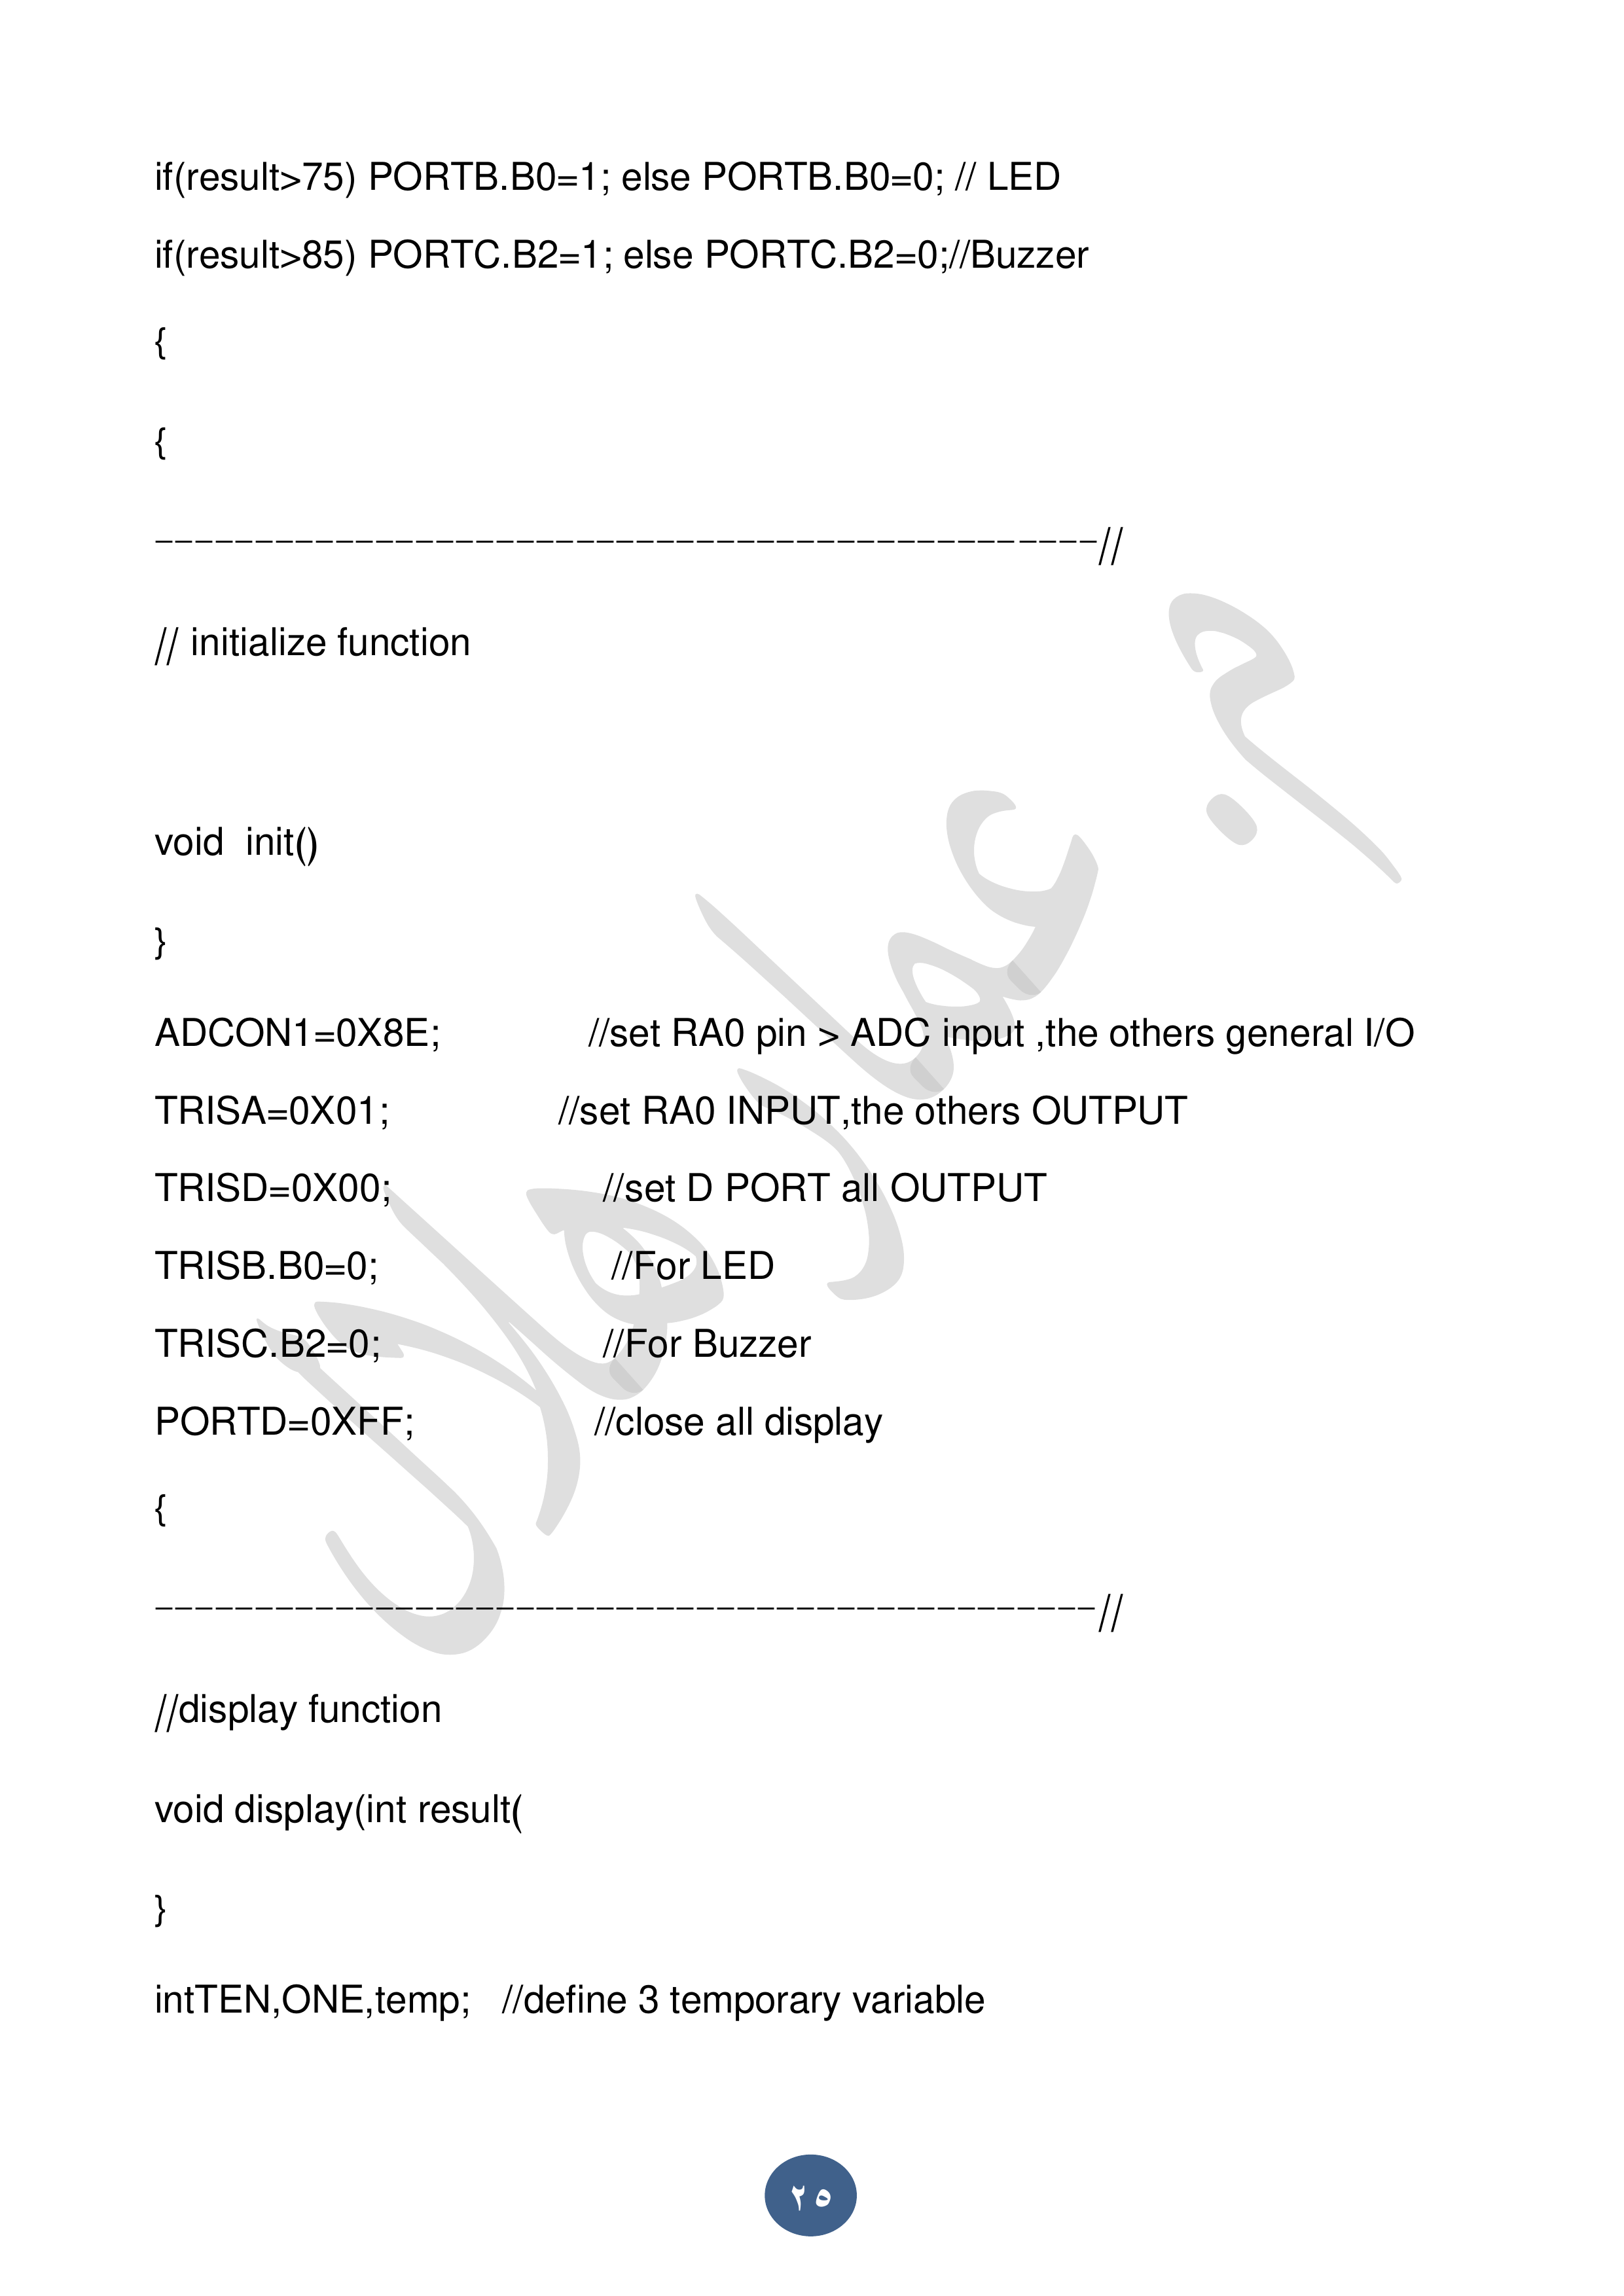 if(result>75) PORTB.B0=1; else PORTB.B0=0; // LED
if(result>85) PORTC.B2=1; else PORTC.B2=0;//Buzzer
{
{
-----------------------------------------------//
// initialize function
void  init()
}
ADCON1=0X8E; //set RA0 pin > ADC input ,the others general I/O
TRISA=0X01; //set RA0 INPUT,the others OUTPUT
TRISD=0X00; //set D PORT all OUTPUT
TRISB.B0=0; //For LED
TRISC.B2=0; //For Buzzer
PORTD=0XFF; //close all display
{
-----------------------------------------------//
//display function
void display(int result(
}
intTEN,ONE,temp; //define 3 temporary variable
م. عمار هلال
٢٥